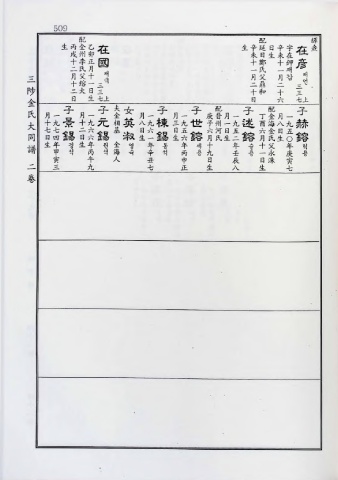 509
在彦 재언 三三七上
字在鉀 재갑
辛未十一月二十六
日生
配延日鄭氏父鼎和
辛未十一月二十日
生
在國 재국 三三七上
乙卯正月十一日生
配全州李氏父
丙戌十二月十三日
生
子赫鎔 혁용
一九五〇年庚寅七
月八日生
配金海金氏父永洙
丁酉六月十一日生
子述鎔 술용
一九五二年壬辰八
月一日生
配晉州河氏
庚子六月十九日生
子世鎔 세용
一九五六年丙申正
月三日生
子棟錫 동석
一九六一年辛丑七
月八日生
女英淑 영숙
夫金相基 金海人
子元錫 원석
一九六六年丙午九
月十二日生
子景錫 경석
一九七四年甲寅三
月十七日生
三陟金氏大同譜 二卷